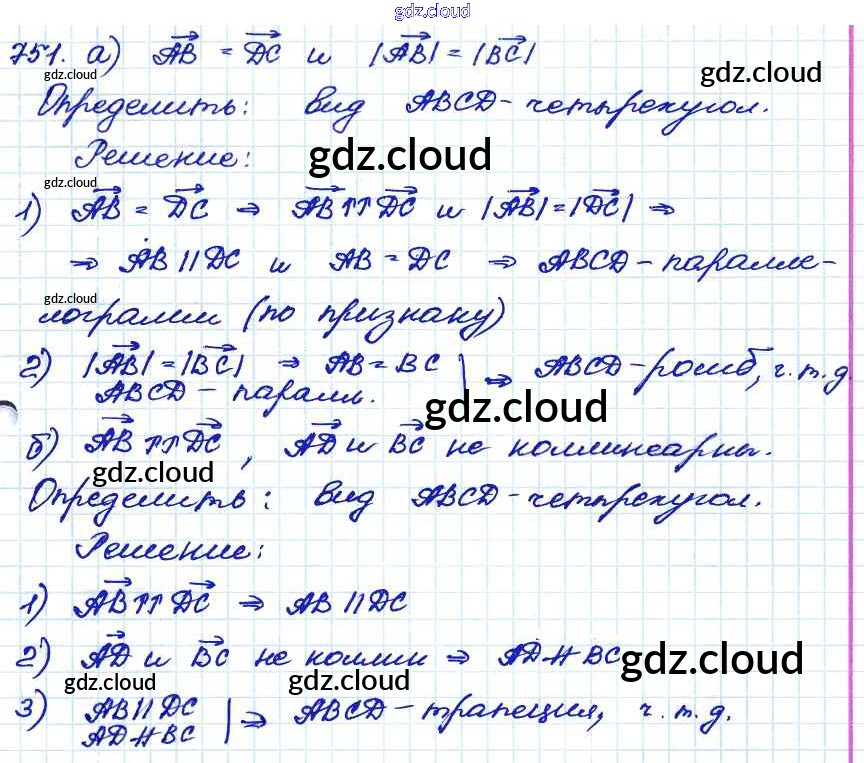 gdz.cloud
751. а) AB = DC и |AB| = |BC|
gdz.cloud gdz.cloud
Определить: вид ABCD-четырехугол.
Решение: gdz.cloud
gdz.cloud
1) AB = DC ⇒ AB↑↑DC и |AB|=|DC| ⇒
⇒ AB // DC и AB = DC ⇒ ABCD-паралле-
gdz.cloud
лограмм (по признаку)
2) |AB|=|BC| ⇒ AB=BC
ABCD-паралл. | ⇒ ABCD-ромб, ч.т.д.
gdz.cloud
б) AB↑↑DC, AD и BC не коллинеарны.
gdz.cloud
Определить: вид ABCD-четырехугол.
Решение:
1) AB↑↑DC ⇒ AB // DC
2) AD и BC не коллин ⇒ AD∦BC
gdz.cloud gdz.cloud gdz.cloud
3) AB//DC
AD∦BC | ⇒ ABCD-трапеция, ч.т.д.